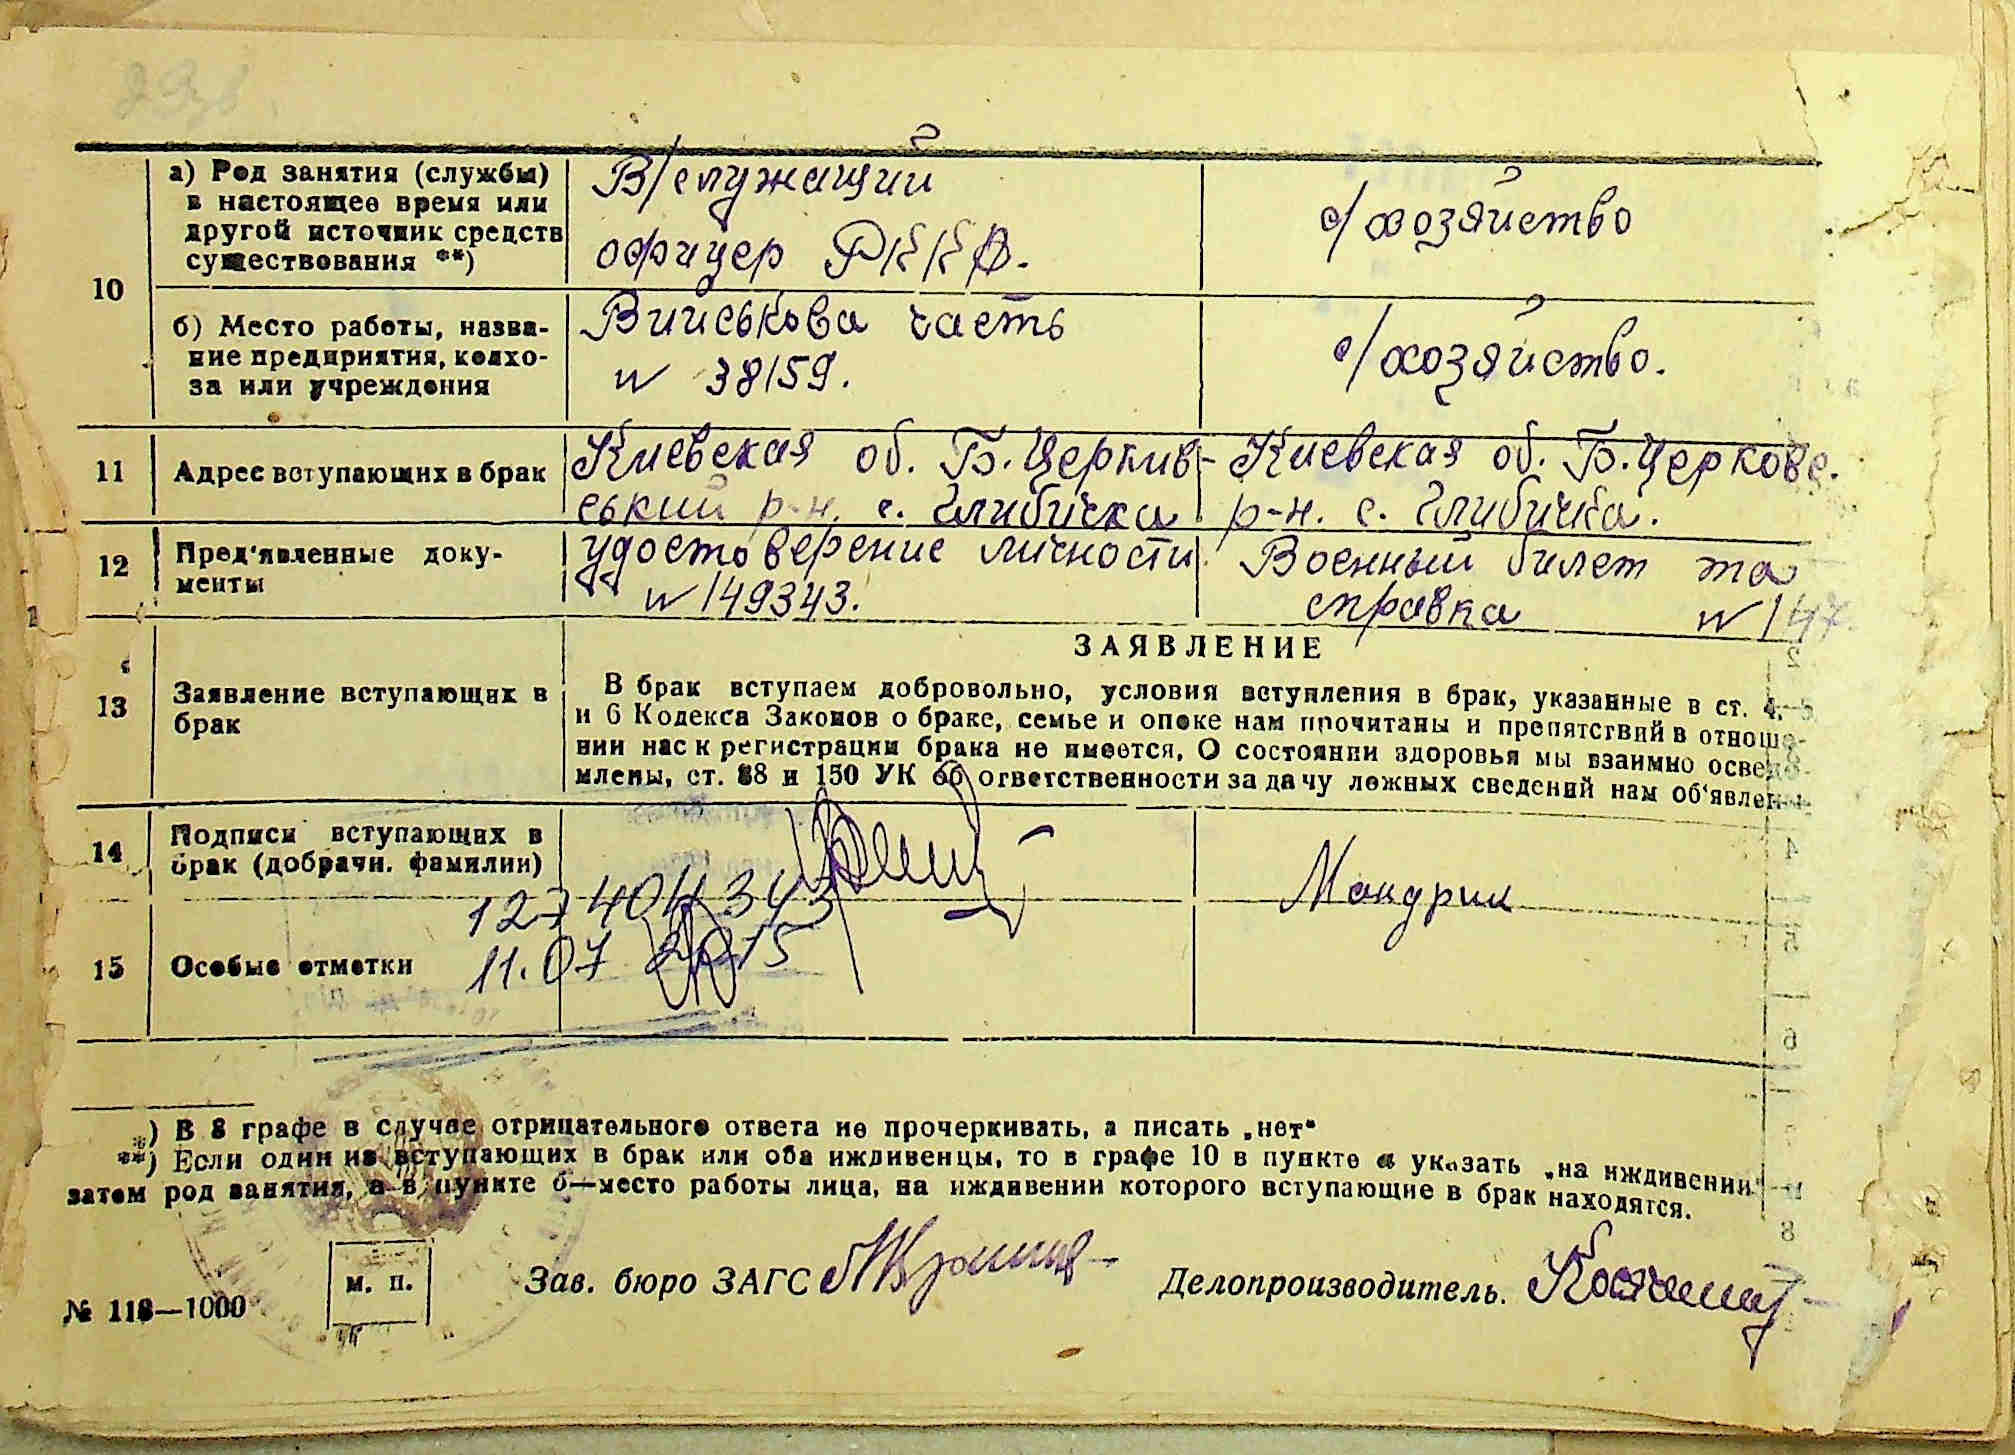 10
а) Род занятия (службы)
в настоящее время или
другой источник средств
существования **)
В/служащий
офицер РККА.
с/хозяйство
б) Место работы, назва-
ние предприятия, колхо-
за или учреждения
Вийськова часть
N 38159.
с/хозяйство.
11
Адрес вступающих в брак
Киевская об. Б. Церкив-
ський р-н. с. Глибичка
Киевская об. Б. Церковс.
р-н. с. Глибичка.
12
Пред'явленные доку-
менты
удостоверение личности
N 149343.
Военный билет та
справка N 147
13
Заявление вступающих в
брак
ЗАЯВЛЕНИЕ
В брак вступаем добровольно, условия вступления в брак, указанные в ст. 4,
и 6 Кодекса Законов о браке, семье и опеке нам прочитаны и препятствий в отноше-
нии нас к регистрации брака не имеется, О состоянии здоровья мы взаимно осведо-
млены, ст. 88 и 150 УК об ответственности за дачу ложных сведений нам об'явлены
14
Подписи вступающих в
брак (добрачн. фамилии)
Мандрик
15
Особые отметки
127404343
11.07 2015
*) В 8 графе в случае отрицательного ответа не прочеркивать, а писать „нет“
**) Если один из вступающих в брак или оба иждивенцы, то в графе 10 в пункте а указать „на иждивении“
затем род занятия, а в пункте б—место работы лица, на иждивении которого вступающие в брак находятся.
м. п.
Зав. бюро ЗАГС
Делопроизводитель.
№ 118—1000